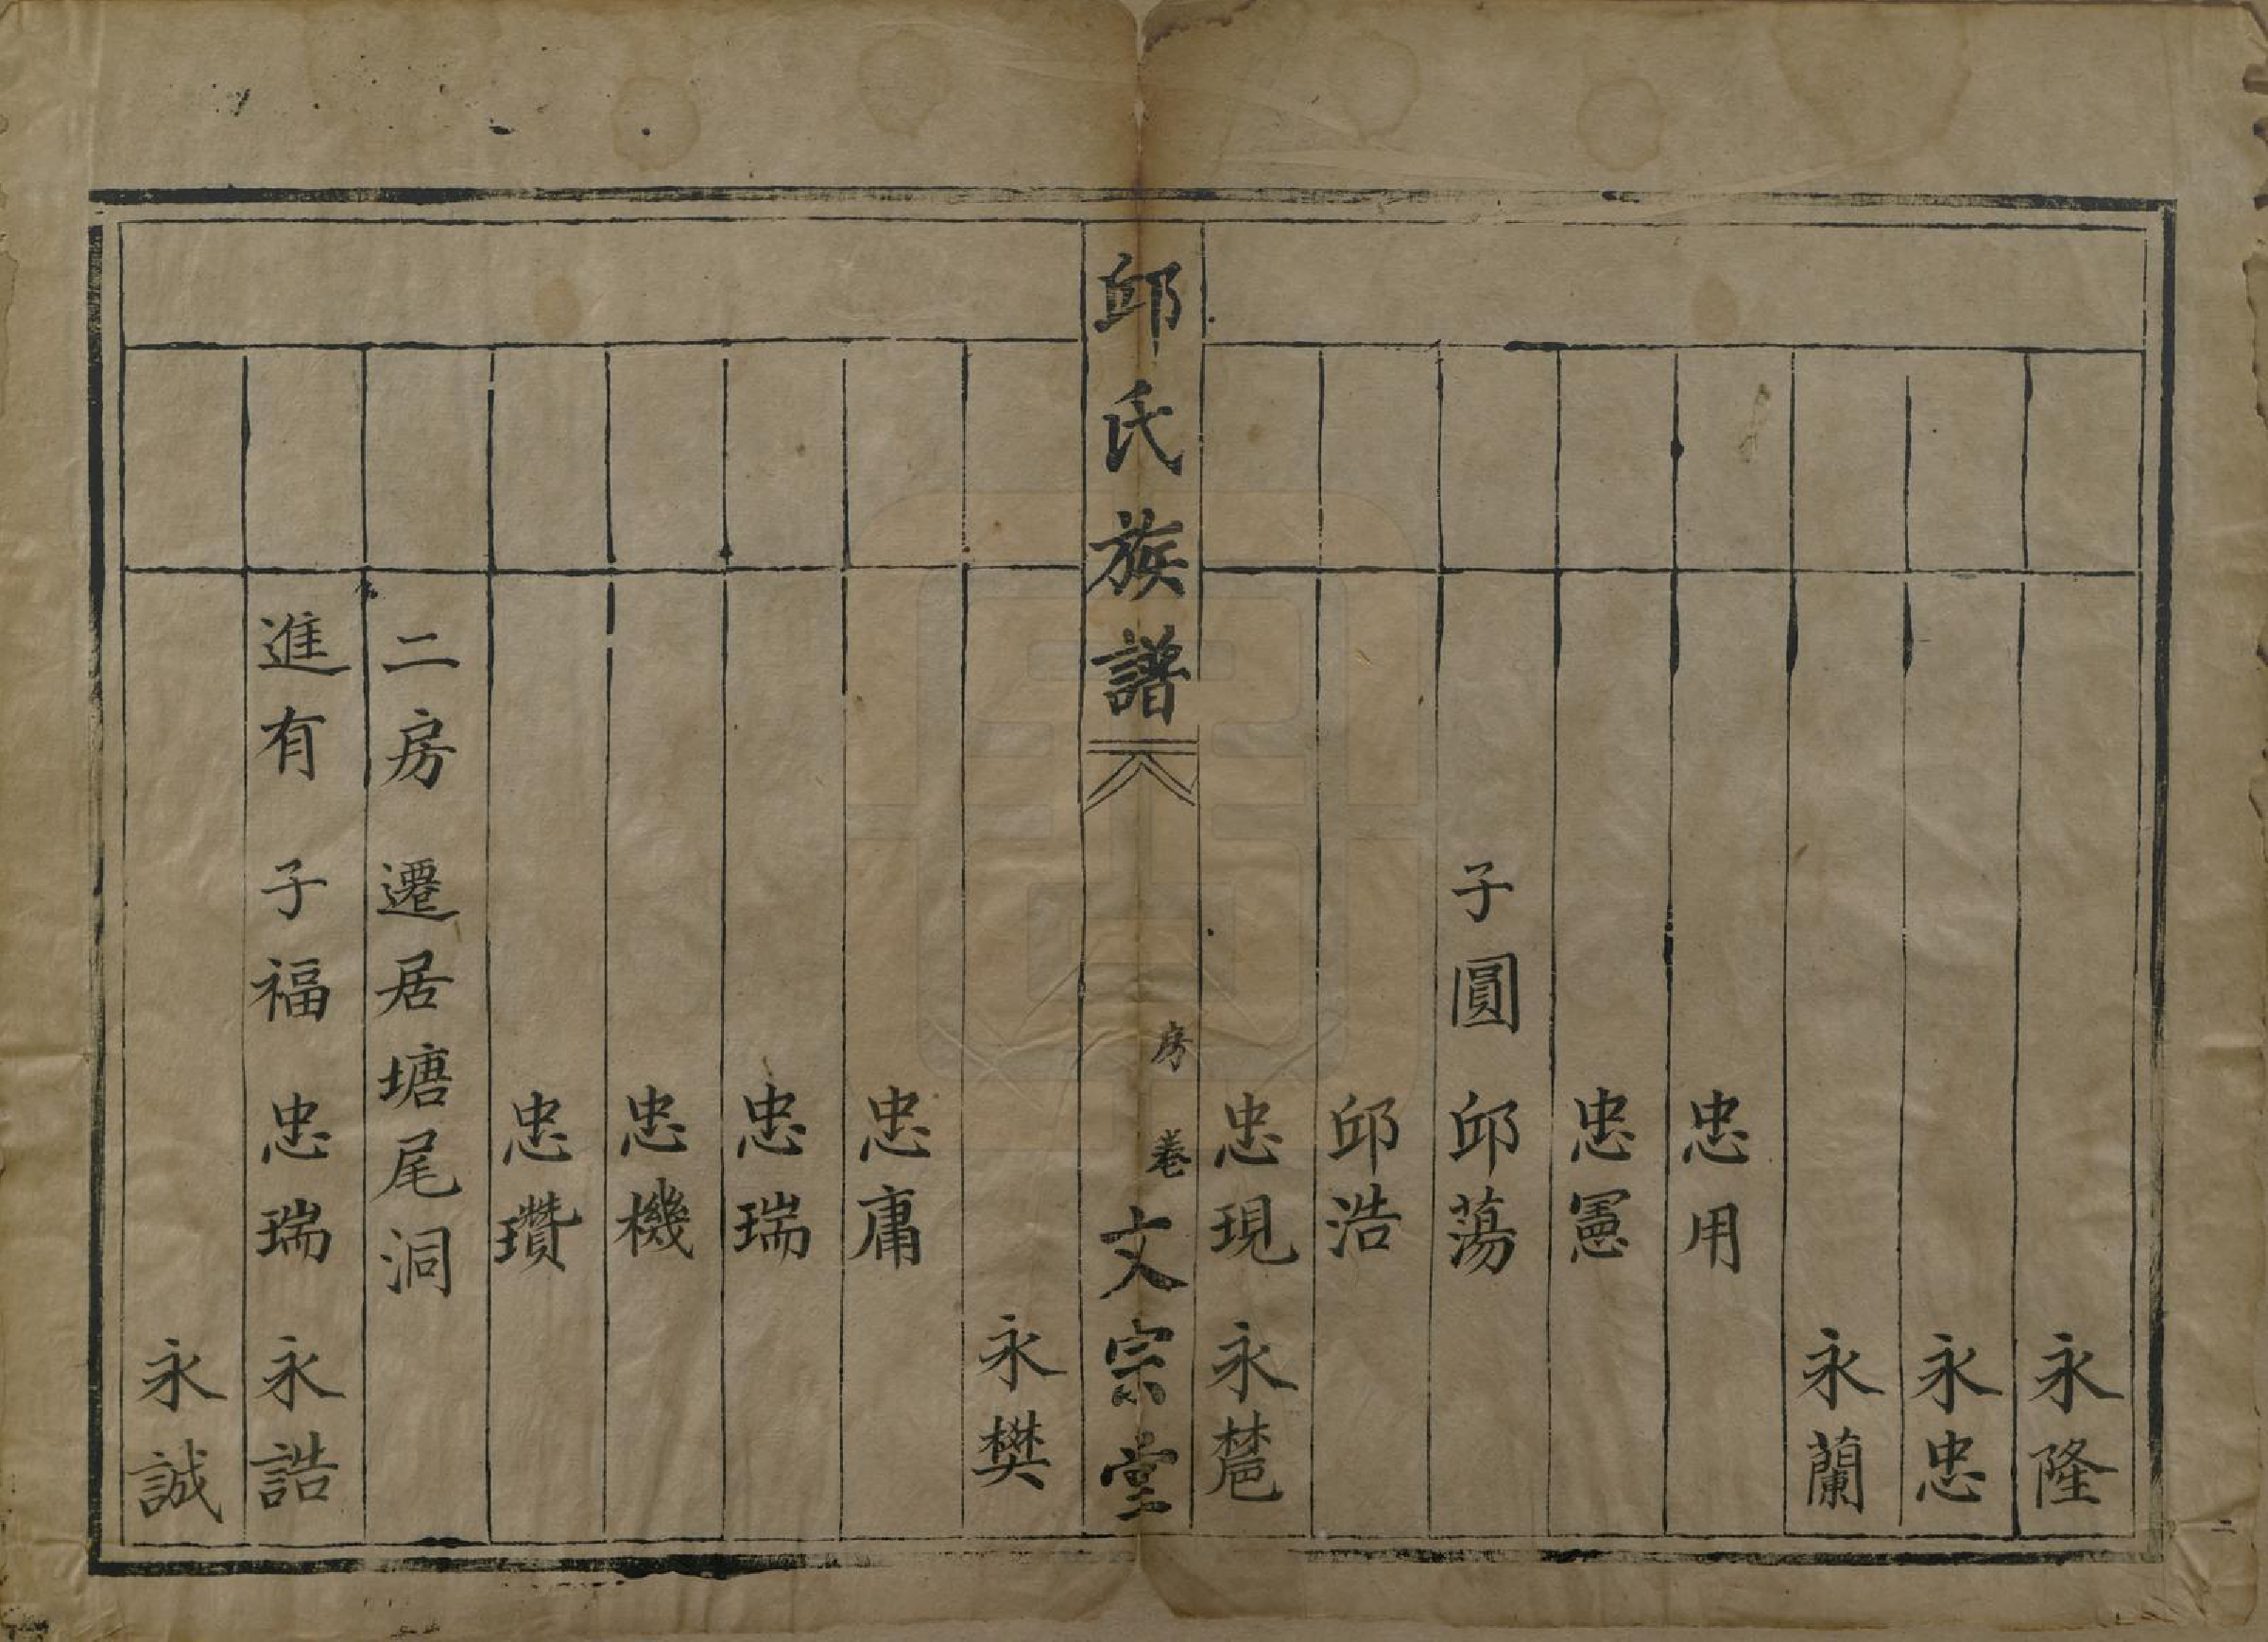 永隆
永忠
永蘭
忠用
忠憲
子圓 邱蕩
邱浩
忠現 永蓖
邱氏族譜 房 卷 文宗堂
永樊
忠庸
忠瑞
忠機
忠瓚
二房 遷居塘尾洞
進有 子福 忠瑞 永誥
永誠